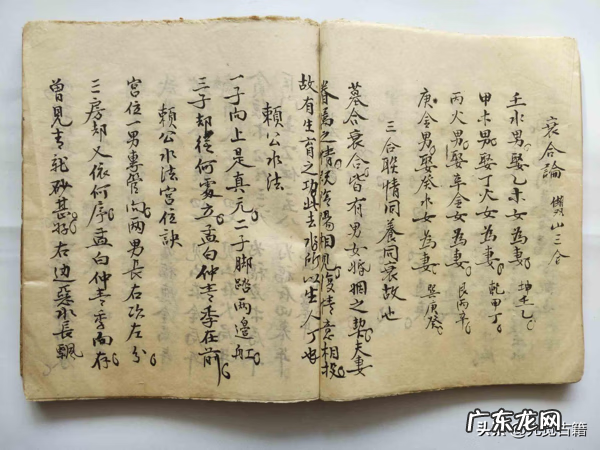 衰合論 山三合
壬水男娶乙木女為妻 坤壬乙
甲木男娶丁火女為妻 乾甲丁
丙火男娶辛金女為妻 艮丙辛
庚金男娶癸水女為妻 巽庚癸
三合聯情同養同衰故也
墓合衰合皆有男女婚姻之契夫妻
眷焉之情既陰陽相見復情意相投
故有生育之功此去水所以生人丁也
賴公水法
一子向上是真元二子脚踏兩邊舡
三子却從何處立孟白仲青季在前
賴公水法宮位訣
宮位一男專管向兩男長右次左分
三房却又依何序孟白仲青季向存
曾見青龍砂甚好右边惡水長飄
广东龙网
头条@九览古籍